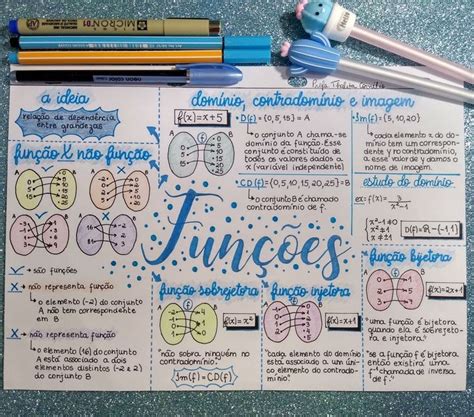 MICRON 01
a ideia
relação de dependência
entre grandezas
função X não função
A B
✓ → são funções
X → não representa função
↳ o elemento (-2) do conjunto
A não tem correspondente
em B
X → não representa função
↳ o elemento (16) do conjunto
A está associado a dois
elementos distintos (-2 e 2)
do conjunto B
domínio, contradomínio e imagem
f(x)=x+5
A (f) B
• D(f) = {0,5,15} = A
↳ o conjunto A chama-se
domínio da função. Esse
conjunto é constituído de
todos os valores dados a
x (variável independente)
• CD(f) = {0,5,10,15,20,25} = B
↳ o conjunto B é chamado
contradomínio de f.
• Im(f) = {5,10,20}
↳ cada elemento x do do-
mínio tem um correspon-
dente y no contradomínio,
a esse valor de y damos o
nome de imagem.
estudo do domínio
ex: f(x) = 3/x²-1
x²-1≠0
x²≠1
D(f) = R - {-1,1}
Funções
função sobrejetora
A (f) B
f(x)=x²
"não sobra ninguém no
contradomínio."
Im(f) = CD(f)
função injetora
A (f) B
f(x)=x+1
"cada elemento do domínio
está associado a um úni-
co elemento do contrado-
mínio."
função bijetora
A (f) B
f(x)=2x+1
"uma função é bijetora
quando ela é sobrejeto-
ra e injetora."
"se a função f é bijetora
então existirá uma
f⁻¹ chamada de inversa
de f."